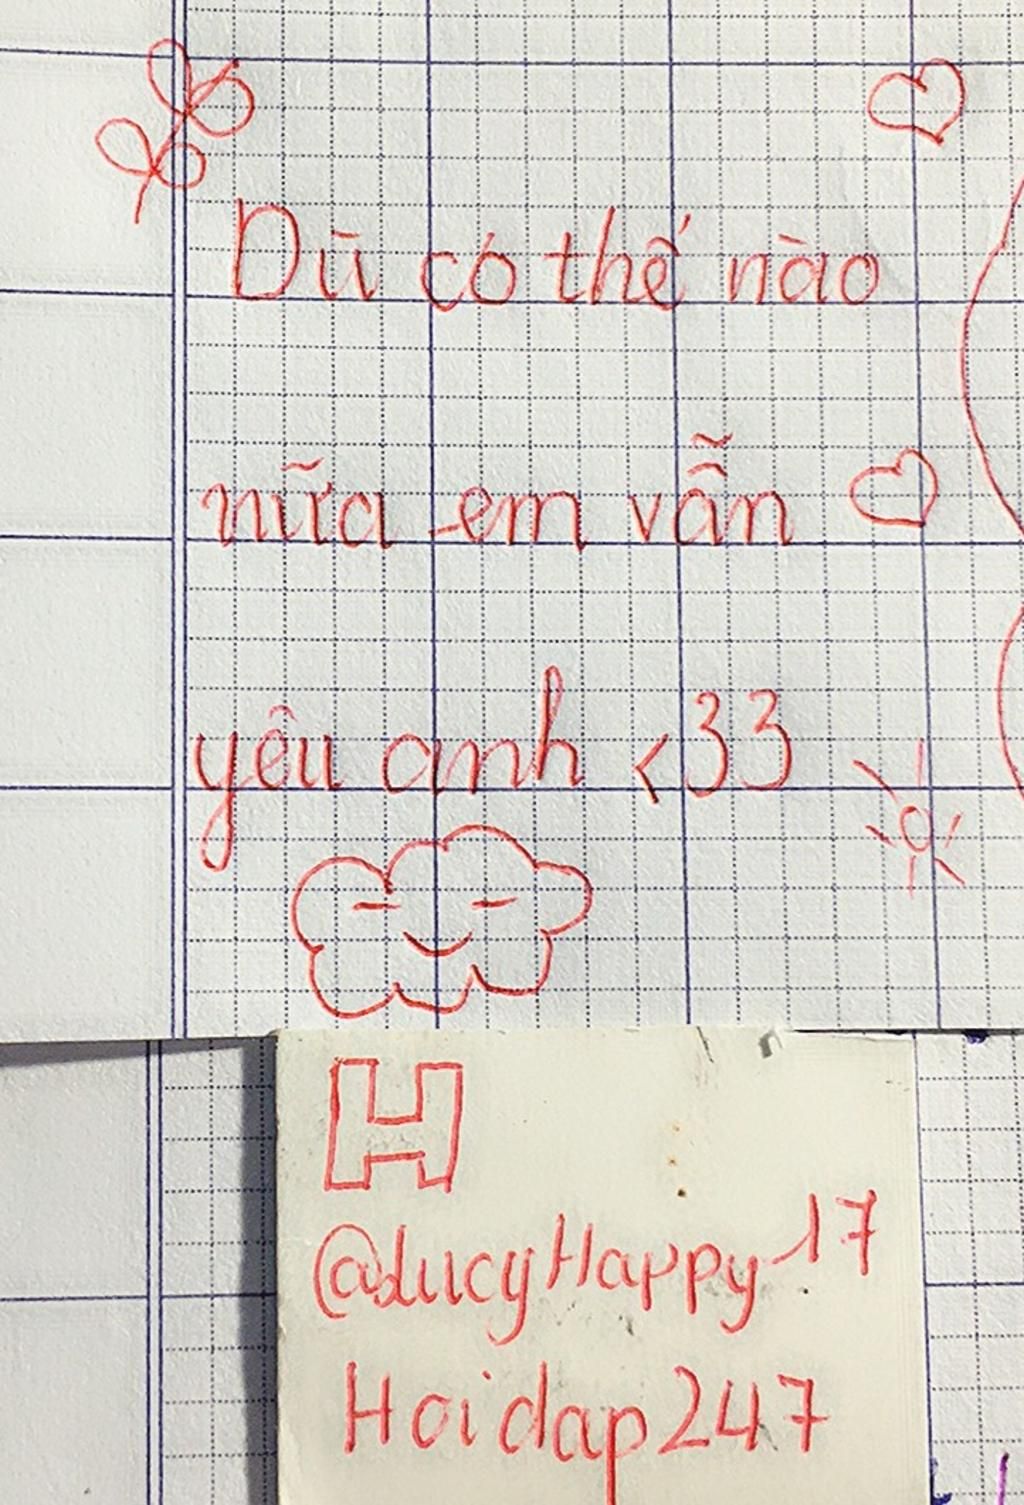 Dù có thế nào
nữa em vẫn
yêu anh <33
H
@LucyHappy17
Hoidap247